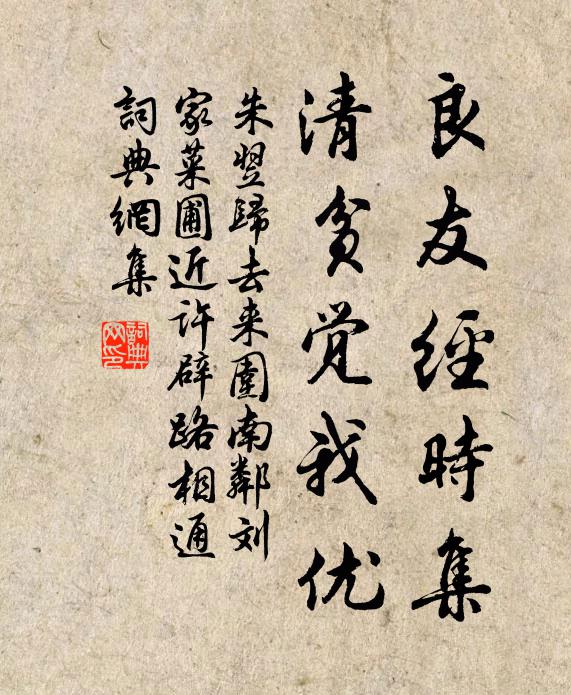 良友經時集
清貧觉我优
朱翌歸去来園南鄰刘
家菜圃近许辟路相通
詞典網集
詞典网印